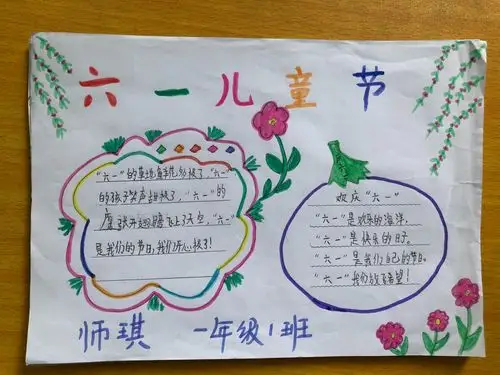 六一儿童节
"六一"的草地有彩了,"六一"
的孩子笑声甜极了,"六一"的
张开翅膀飞上了天空,"六一"
是我们的节日,我们开心极了!
欢庆"六一"
"六一"是欢乐的海洋,
"六一"是快乐的日子。
"六一"是我们自己的节日。
"六一"我们放飞希望!
师琪 一年级1班